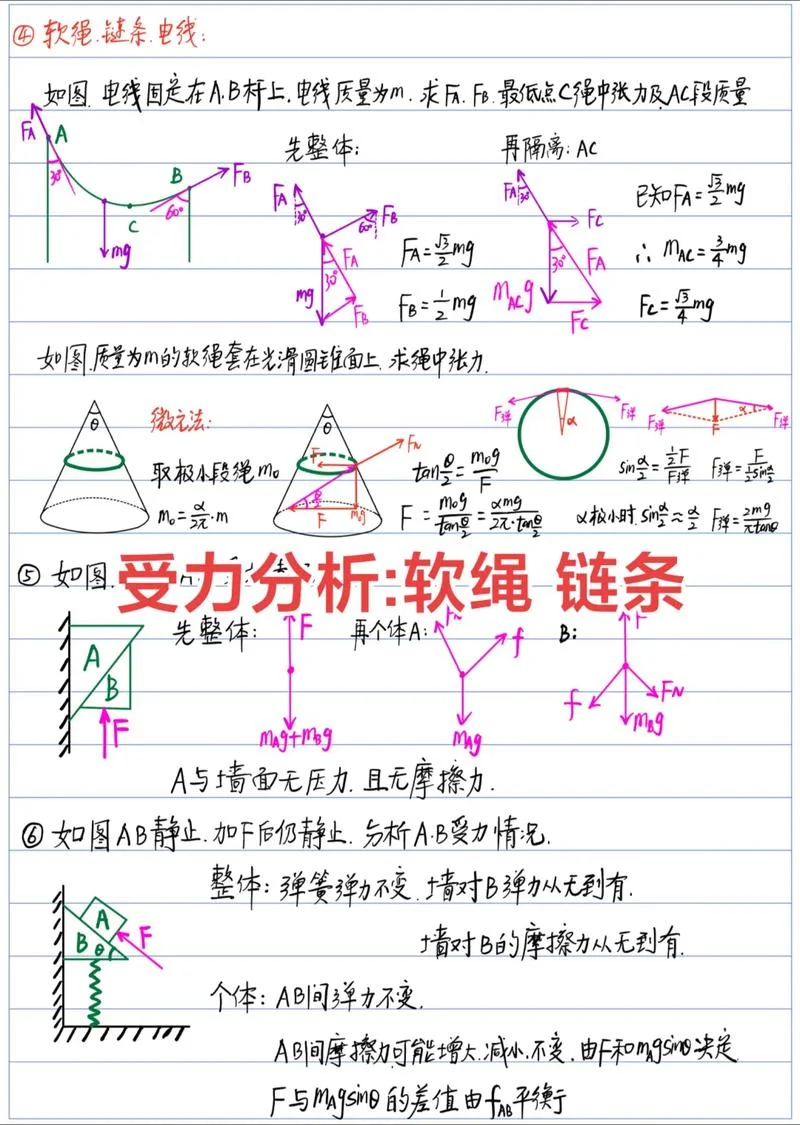 ④ 软绳.链条.电线:
如图.电线固定在A.B杆上.电线质量为m.求FA.FB.最低点C绳中张力及AC段质量
先整体: 再隔离:AC
FA A 30° B FB 60° C mg
FA 30° FB 60° FA 30° mg FB
FA=√3/2mg
FB=1/2mg
FA 30° FC 30° FA mACg FC
已知FA=√3/2mg
∴ mAC=3/4mg
FC=√3/4mg
如图.质量为m的软绳套在光滑圆锥面上.求绳中张力.
θ
微元法:
取极小段绳m₀
m₀=α/2π·m
θ FN F θ/2 F m₀g
tanθ/2=m₀g/F
F=m₀g/tanθ/2=αmg/2π·tanθ/2
F弹 F弹 α
F弹 F α F弹
sinα/2=1/2F/F弹 F弹=F/2sinα/2
α极小时.sinα/2≈α/2 F弹=2mg/πtanθ
受力分析:软绳 链条
⑤ 如图.
先整体: 再个体A: B:
A B F
F mAg+mBg
FN f mAg
F f FN mBg
A与墙面无压力.且无摩擦力.
⑥ 如图AB静止.加F后仍静止.分析A.B受力情况.
整体: 弹簧弹力不变.墙对B弹力从无到有.
墙对B的摩擦力从无到有.
A B θ F
个体: AB间弹力不变.
AB间摩擦力可能增大.减小.不变.由F和mAgsinθ决定
F与mAgsinθ的差值由fAB平衡